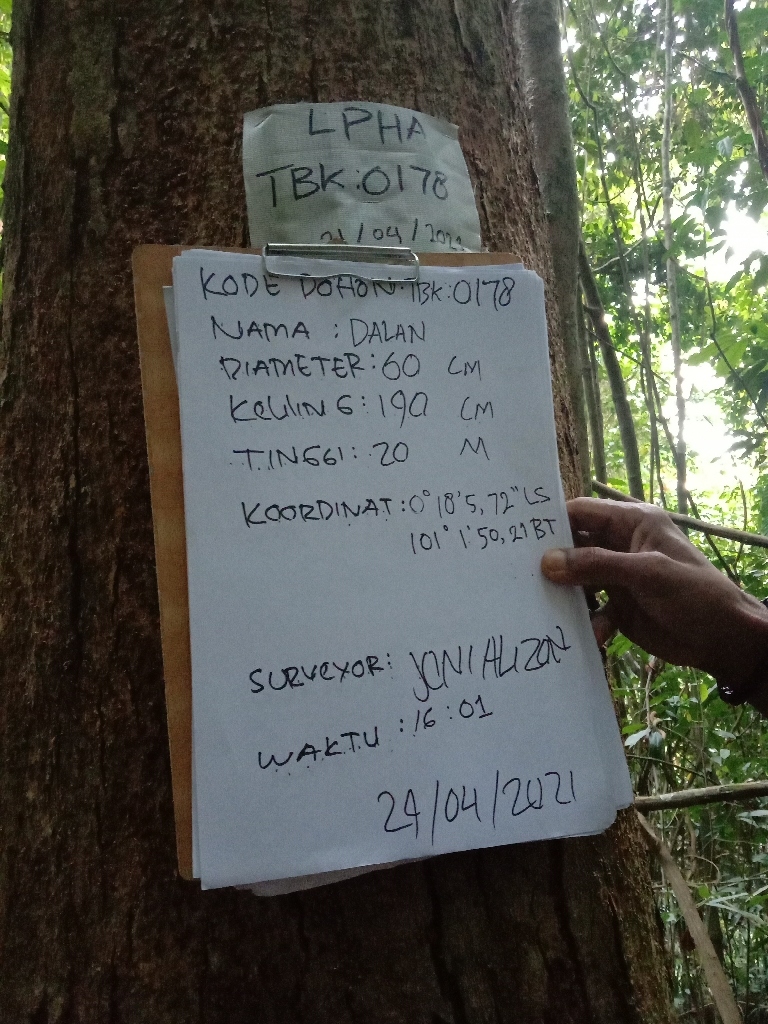 LPHA
TBK:0178
21/04/2021
KODE POHON:TBK:0178
NAMA : DALAN
DIAMETER:60 CM
KELILING:190 CM
TINGGI:20 M
KOORDINAT:0°18'5,72"LS
101°1'50,21BT
SURVEYOR: JONI ALIZON
WAKTU :16:01
24/04/2021